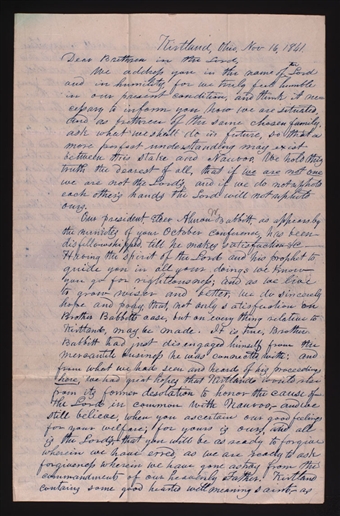 Kirtland, Ohio, Nov 16, 1841.
Dear Brethren in the Lord,
We address you in the name of the Lord
and in humility, for we truly feel humble
in our present condition, and think it nec-
essary to inform you how we are situated
and as brethren of the same chosen family,
ask what we shall do in future, so that a
more perfect understanding may exist
between this stake and Nauvoo. We hold this
truth the dearest of all, that if we are not one
we are not the Lord's, and if we do not uphold
each others hands the Lord will not uphold
ours.
Our president Elder Almon W Babbitt, as appears by
the minutes of your October conference, has been
disfellowshipped, till he makes satisfaction &c
Having the spirit of the Lord and his prophet to
guide you in all your doings we know
you go for righteousness; and as we live
to grow wiser and better, we do sincerely
hope and pray that not only satisfaction on
Brother Babbitts case, but on every thing relative to
Kirtland, may be made. It is true, Brother
Babbitt had not disengaged himself from the
mercantile business he was connected with; and
from what we had seen and heard of his proceedings
here, we had great hopes that Kirtland would rise
from its former desolation to honor the cause of
the Lord in common with Nauvoo and we
still believe, when you ascertain our good feelings
for your welfare; for yours is ours, and all
is the Lord's; that you will be as ready to forgive
wherein we have erred, as we are ready to ask
forgiveness wherein we have gone astray from the
commandment of our heavenly Father. Kirtland
contains some good hearted well meaning saints, as